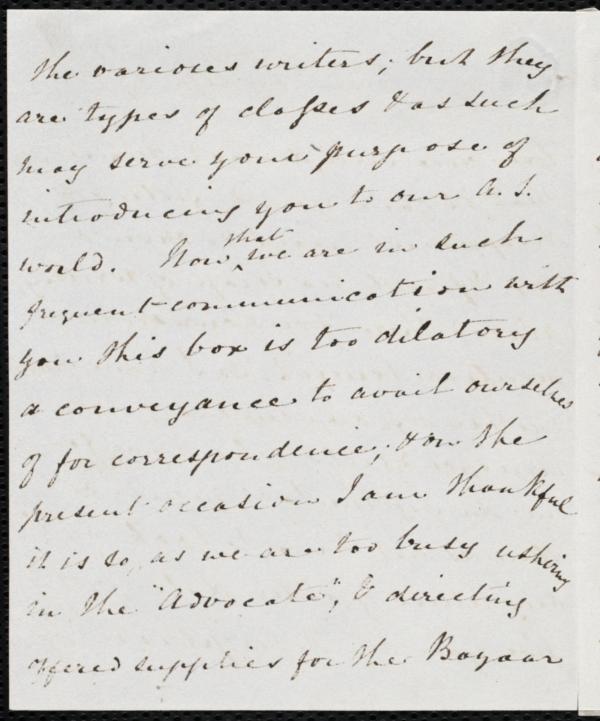 the various writers; but they
are types of classes & as such
may serve your purpose of
introducing you to our A. S.
world. Now that we are in such
frequent communication with
you this box is too dilatory
a conveyance to avail ourselves
of for correspondence; & on the
present occasion I am thankful
it is so, as we are too busy ushering
in the "Advocate", & directing
offered supplies for the Bazaar